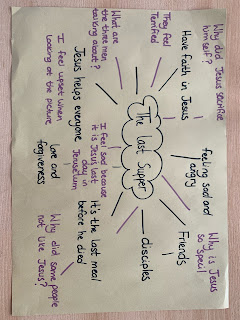 Why did Jesus sacrifice
himself?
Have faith in Jesus
They feel
terrified
What are
the three men
talking about?
Jesus helps everyone
I feel upset when
looking at the picture
The last Supper
feeling sad and
angry
Why is Jesus
so 'specil
Friends
disciples
I feel sad because
it is Jesus last
day in
Jerusalem
It's the last meal
before he died
love and
forgiveness
Why did some people
not like Jesus?